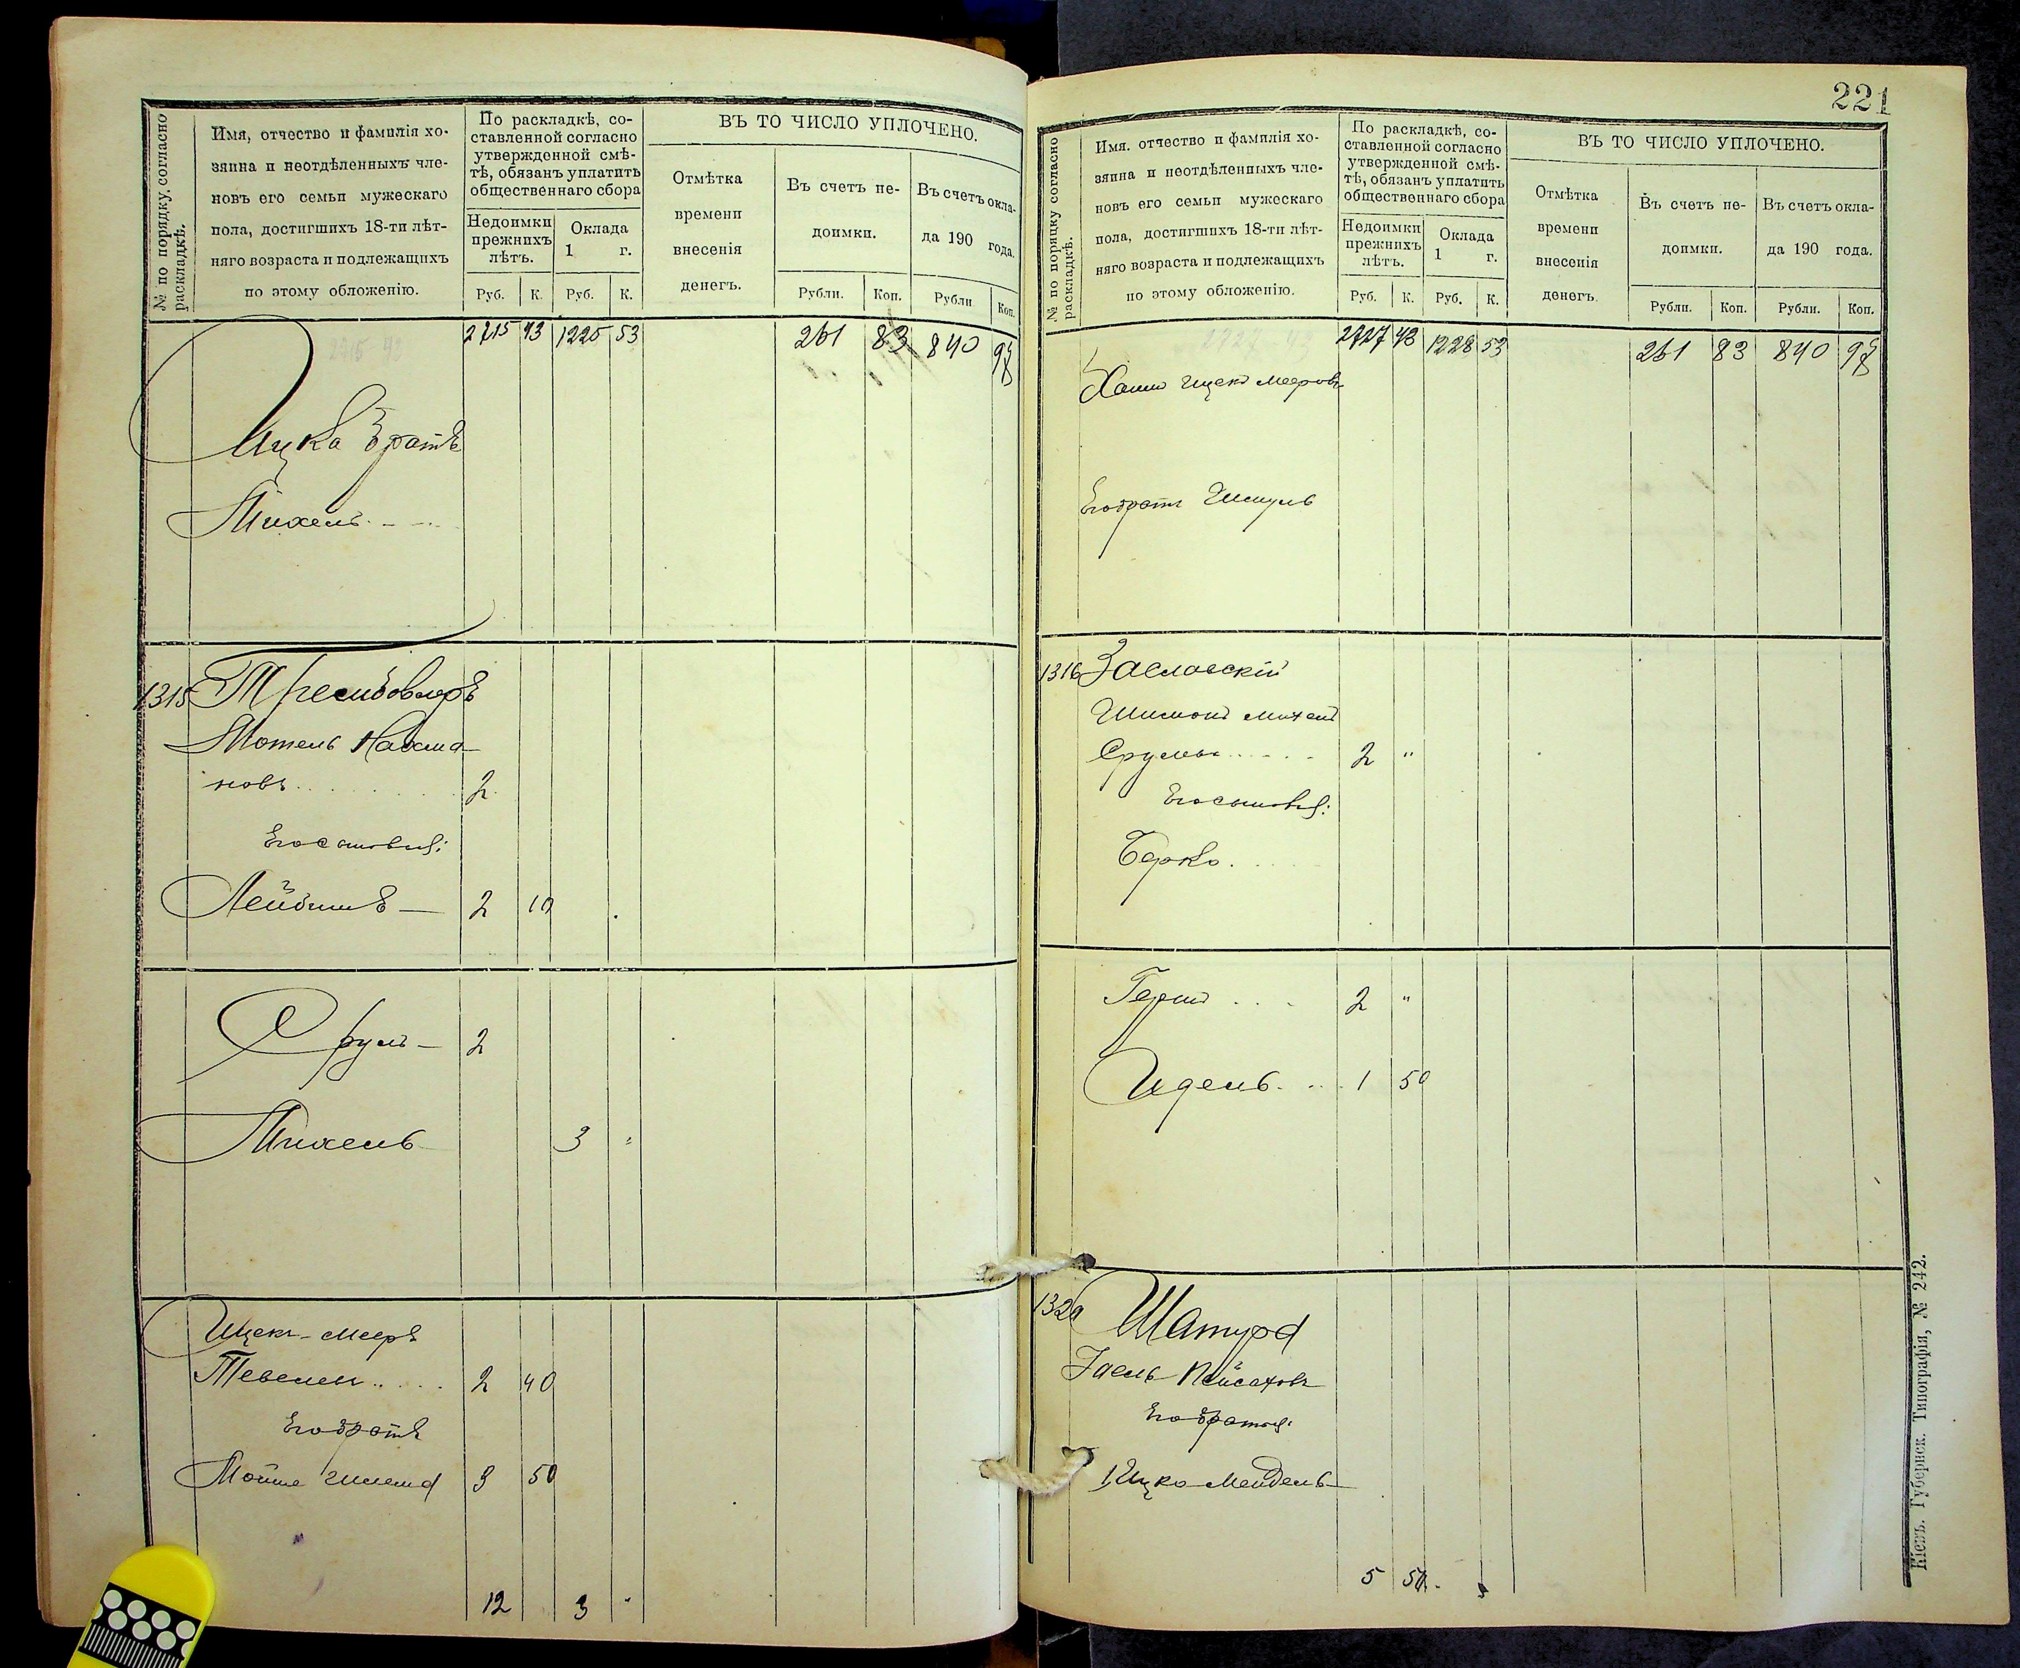 № по порядку, согласно раскладкѣ.
Имя, отчество и фамилія хо-
зяина и неотдѣленныхъ чле-
новъ его семьи мужескаго
пола, достигшихъ 18-ти лѣт-
няго возраста и подлежащихъ
по этому обложенію.
По раскладкѣ, со-
ставленной согласно
утвержденной смѣ-
тѣ, обязанъ уплатить
общественнаго сбора
Недоимки
прежнихъ
лѣтъ.
Оклада
1 г.
Руб. К. Руб. К.
ВЪ ТО ЧИСЛО УПЛОЧЕНО.
Отмѣтка
времени
внесенія
денегъ.
Въ счетъ не-
доимки.
Рубли. Коп.
Въ счетъ окла-
да 190 года.
Рубли Коп.
2715 43 1225 53 261 83 840 98
Ицка братъ
Михель
1315
Мотель Нахма-
новъ 2
Его сыновья:
Лейбишъ 2 10
Сруль 2
Михель 3 "
Ицекъ-Мееръ
Тевелев 2 40
Его братъ
Мойше Шлема 3 50
12 3 "
221
№ по порядку согласно раскладкѣ.
Имя. отчество и фамилія хо-
зяина и неотдѣленныхъ чле-
новъ его семьи мужескаго
пола, достигшихъ 18-ти лѣт-
няго возраста и подлежащихъ
по этому обложенію.
По раскладкѣ, со-
ставленной согласно
утвержденной смѣ-
тѣ, обязанъ уплатить
общественнаго сбора
Недоимки
прежнихъ
лѣтъ.
Оклада
1 г.
Руб. К. Руб. К.
ВЪ ТО ЧИСЛО УПЛОЧЕНО.
Отмѣтка
времени
внесенія
денегъ.
Въ счетъ не-
доимки.
Рубли. Коп.
Въ счетъ окла-
да 190 года.
Рубли. Коп.
2727 43 1228 53 261 83 840 98
Ицекъ Мееровъ
Его братъ Шмуль
1316 Заславскій
Шимонъ Михель
Срулевъ 2 "
Его сыновья:
Берко
Герш 2 "
Идель 1 50
1320 Шатура
Пейсаховъ
Его братья:
1, Ицко-Мендель
5 50
Кіевъ. Губернск. Типографія, № 242.